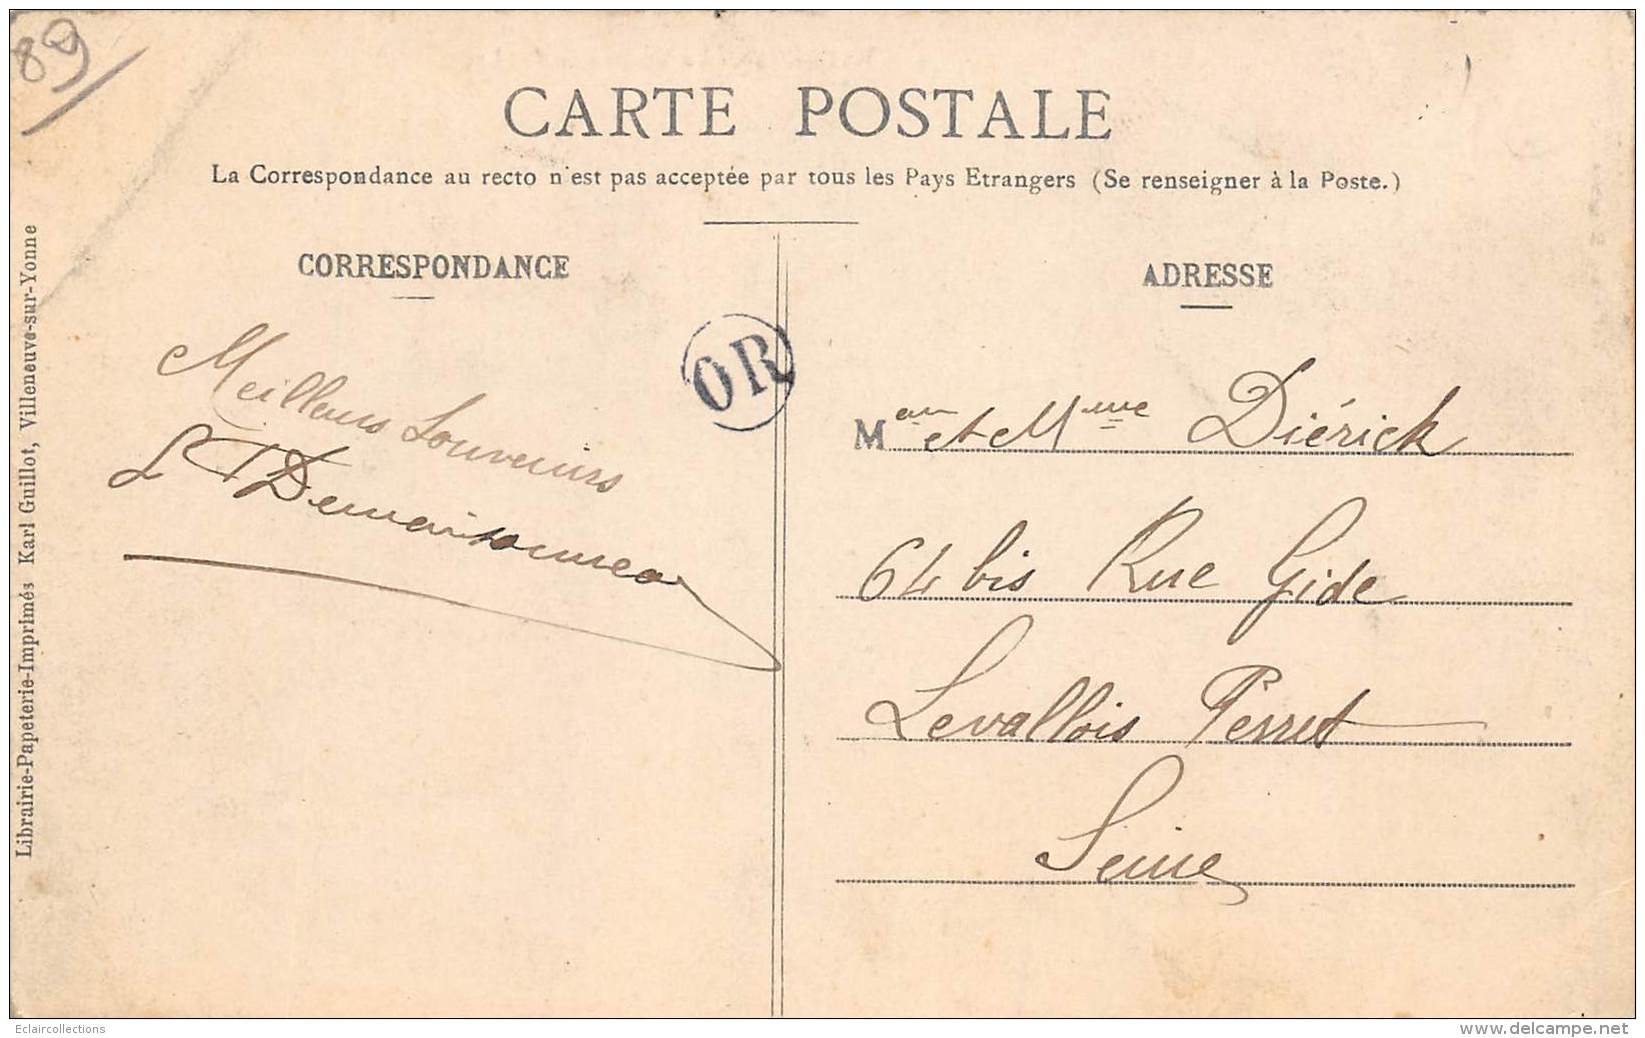 89
CARTE POSTALE
La Correspondance au recto n'est pas acceptée par tous les Pays Etrangers (Se renseigner à la Poste.)
CORRESPONDANCE
Meilleurs Souvenirs
OR
ADRESSE
M et Mme Diérick
64 bis Rue Gide
Levallois Perret
Seine
Librairie-Papeterie-Imprimés Karl Guillot, Villeneuve-sur-Yonne
Eclaircollections
www.delcampe.net